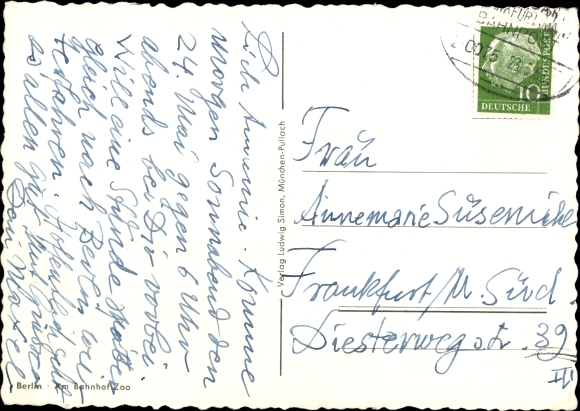 Lieb Annemie. Komme
morgen Sonnabend den
24. Mai gegen 6 Uhr
abends bei Dir vorbei.
Will eine Stunde später
gleich nach Berlin weiter
fahren. Hoffentlich geht
es allen gut. Herzl. Grüßen
Dein
Berlin · Am Bahnhof Zoo
Verlag Ludwig Simon, München-Pullach
BAHNPOST
10
DEUTSCHE
BUNDESPOST
Frau
Annemarie Süsemihl
Frankfurt/M. Süd.
Diesterwegstr. 39
III